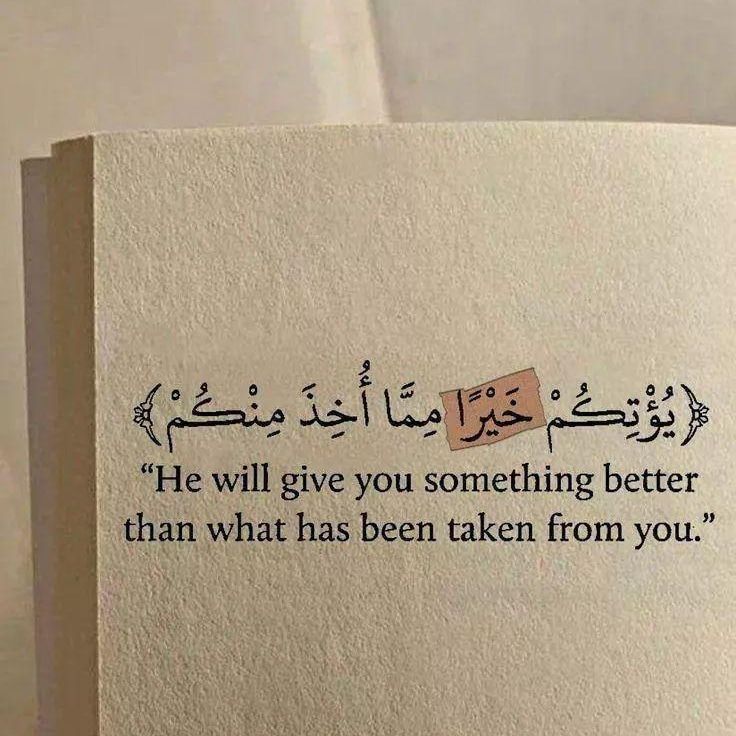 ﴿يُؤْتِكُمْ خَيْرًا مِمَّا أُخِذَ مِنْكُمْ﴾
“He will give you something better
than what has been taken from you.”